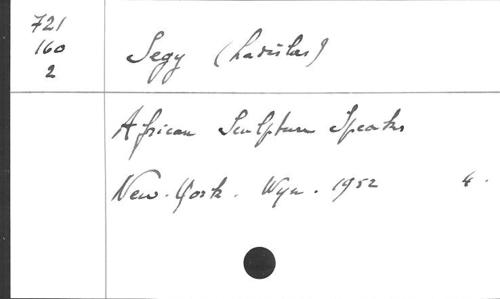 721
160
2
Segy (Ladislas)
African Sculpture Speaks
New-York. Wyn. 1952 4.